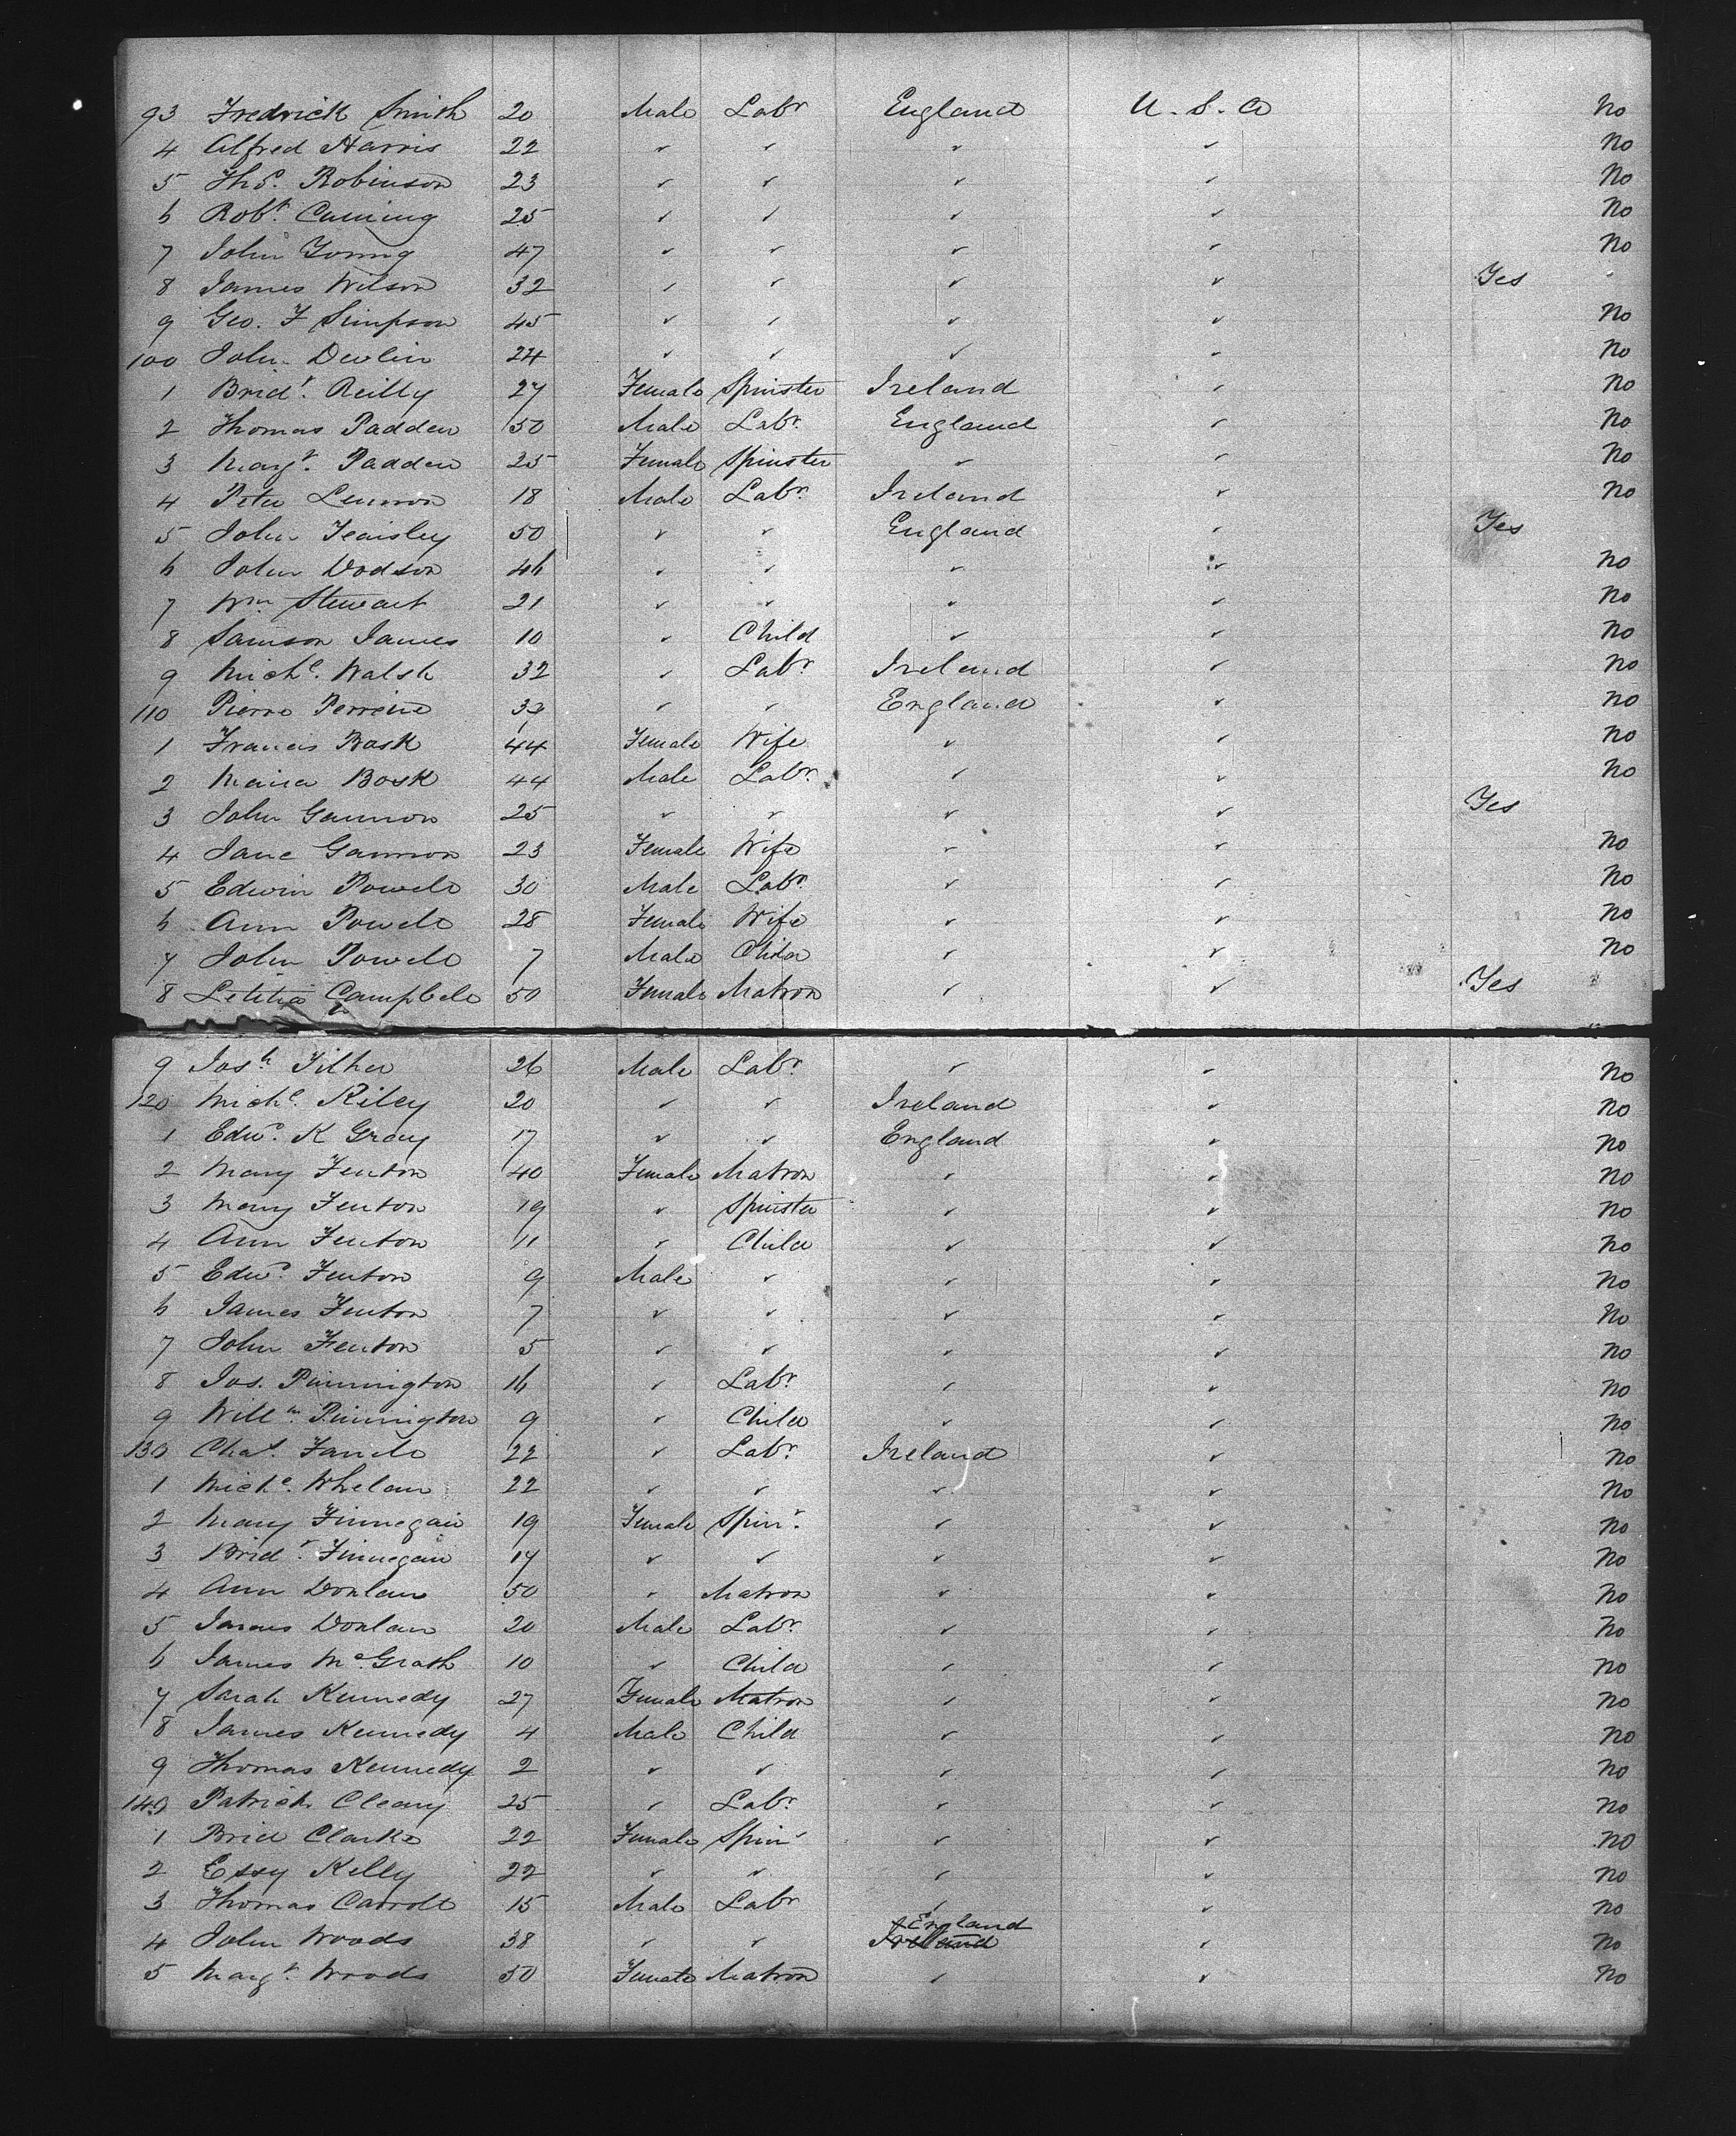 93 Fredrick Smith 20 Male Labr England U.S.A No
4 Alfred Harris 22 " " " " No
5 Ths. Robinson 23 " " " " No
6 Robt. Cuming 25 " " " " No
7 John Young 47 " " " " No
8 James Wilson 32 " " " " Yes
9 Geo. F Simpson 45 " " " " No
100 John Devlin 24 " " " " No
1 Bridt. Reilly 27 Female Spinster Ireland " No
2 Thomas Padden 50 Male Labr. England " No
3 Margt. Padden 25 Female Spinster " " No
4 Peter Lennon 18 Male Labr. Ireland " No
5 John Teaisley 50 " " England " Yes
6 John Dodson 46 " " " " No
7 Wm. Stewart 21 " " " " No
8 Samson James 10 " Child " " No
9 Michl. Walsh 32 " Labr. Ireland " No
110 Pierre Perrine 33 " " England " No
1 Francis Bosk 44 Female Wife " " No
2 Maria Bosk 44 Male Labr. " " No
3 John Gannon 25 " " " " Yes
4 Jane Gannon 23 Female Wife " " No
5 Edwin Powell 30 Male Labr. " " No
6 Ann Powell 28 Female Wife " " No
7 John Powell 7 Male Child " " No
8 Letitia Campbell 50 Female Matron " " Yes
9 Josh 26 Male Labr. " " No
120 Michl. Riley 20 " " Ireland " No
1 Edwd. K Gray 17 " " England " No
2 Mary Fenton 40 Female Matron " " No
3 Mary Fenton 19 " Spinster " " No
4 Ann Fenton 11 " Child " " No
5 Edwd. Fenton 9 Male " " " No
6 James Fenton 7 " " " " No
7 John Fenton 5 " " " " No
8 Jos. Pinnington 16 " Labr. " " No
9 Willm. Pinnington 9 " Child " " No
130 Chas. 22 " Labr. Ireland " No
1 Michl. Whelan 22 " " " " No
2 Mary Finnegan 19 Female Spinr. " " No
3 Bridt. Finnegan 17 " " " " No
4 Ann Donlan 50 " Matron " " No
5 James Donlan 20 Male Labr. " " No
6 James McGrath 10 " Child " " No
7 Sarah Kennedy 27 Female Matron " " No
8 James Kennedy 4 Male Child " " No
9 Thomas Kennedy 2 " " " " No
140 Patrick Cleary 25 " Labr. " " No
1 Brid Clarke 22 Female Spinr " " No
2 Essy Kelly 22 " " " " No
3 Thomas Carroll 15 Male Labr " " No
4 John Woods 38 " " England Ireland " No
5 Margt. Woods 50 Female Matron " " No